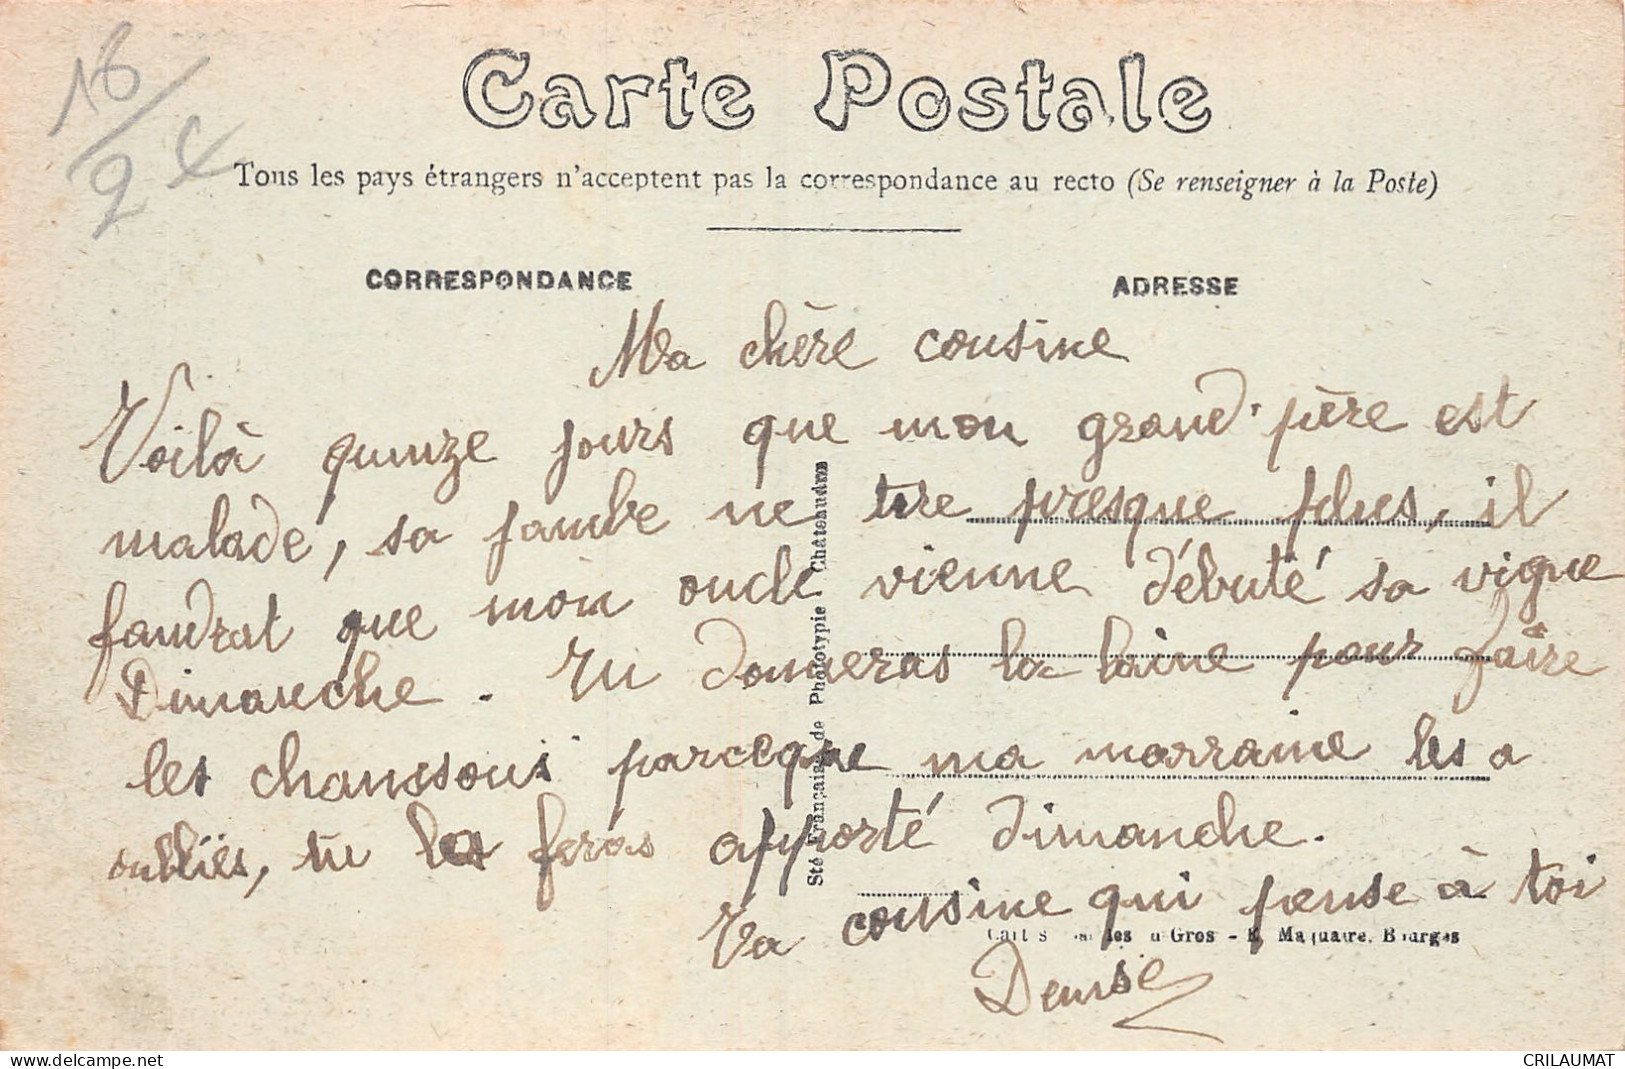 16/2 €
Carte Postale
Tous les pays étrangers n'acceptent pas la correspondance au recto (Se renseigner à la Poste)
CORRESPONDANCE
ADRESSE
Ma chère cousine
Voilà quinze jours que mon grand-père est
malade, sa jambe ne tire presque plus, il
faudrat que mon oncle vienne débuté sa vigne
Dimanche. Tu donneras la laine pour faire
les chaussons parceque ma marraine les a
oubliés, tu les feras apporté dimanche.
Ta cousine qui pense à toi
Denise
Sté Française de Phototypie Châteaudun
Gros - E. Maquaire, Bourges
www.delcampe.net
CRILAUMAT